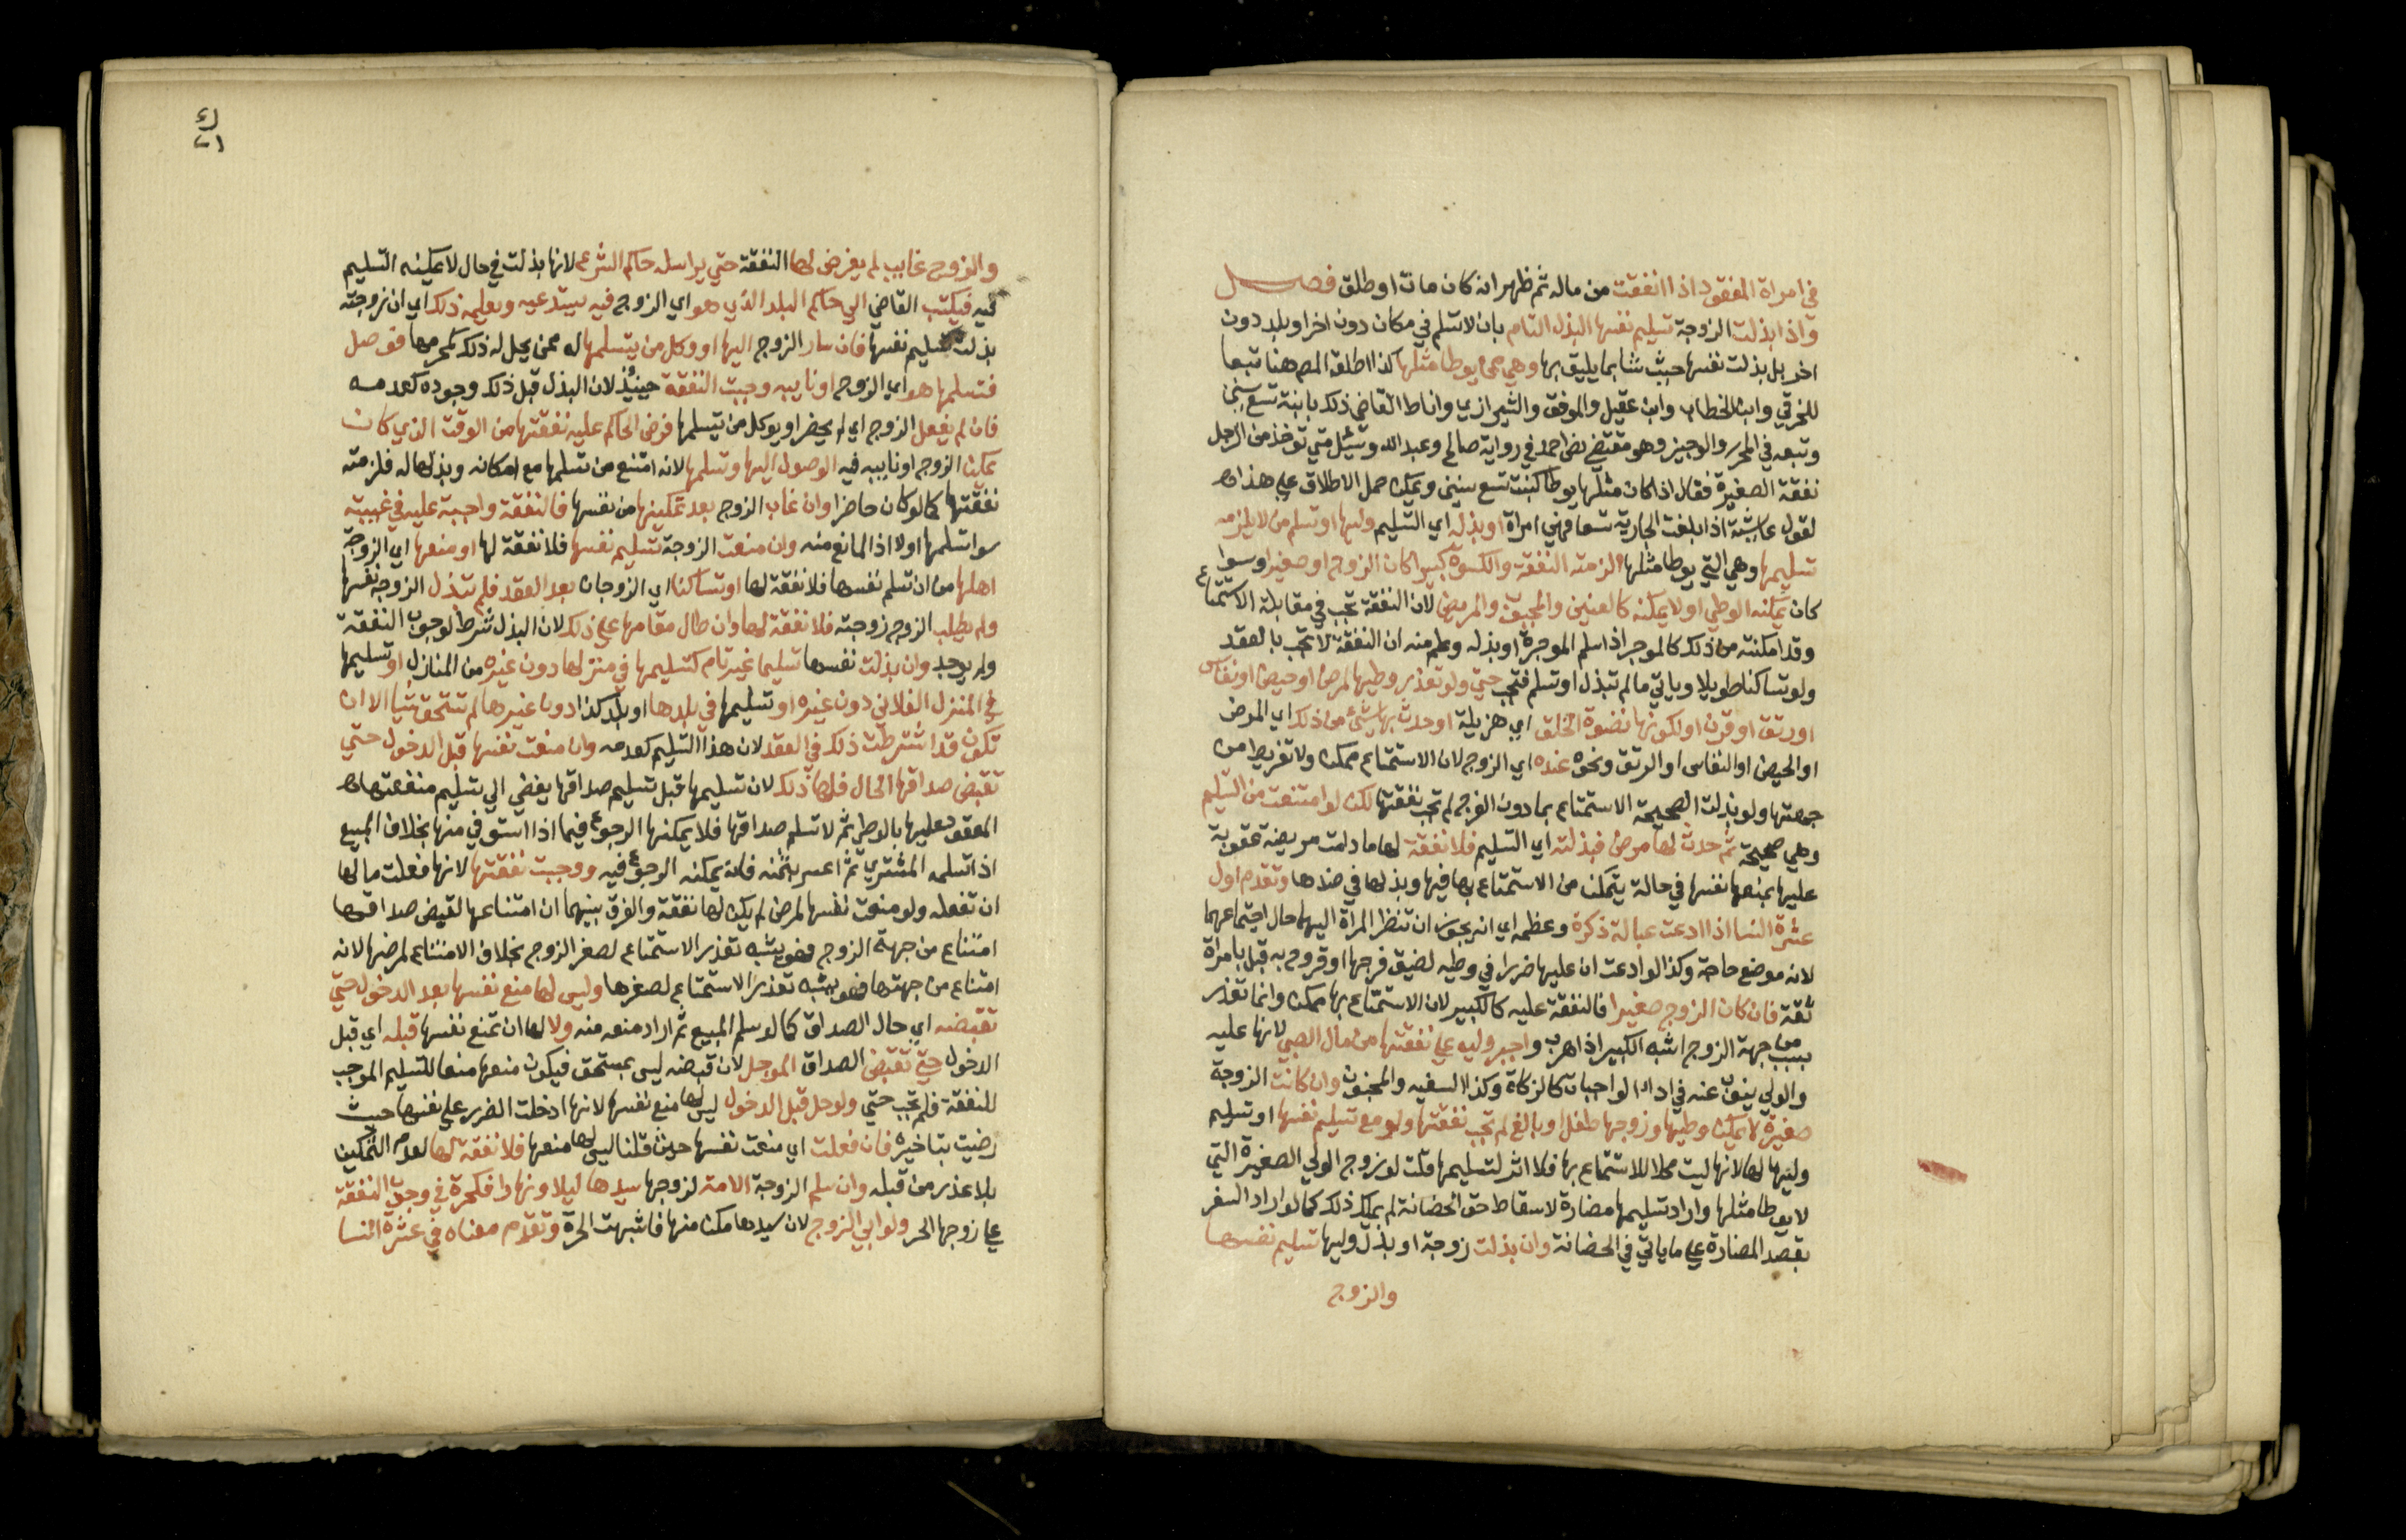 في امراة المفقود اذا انفقت من ماله ثم ظهر انه كان مات او طلق فصل
واذا بذلت الزوجة تسليم نفسها البذل التام بان لا تسلم في مكان دون اخر او بلد دون
اخر بل بذلت نفسها حيث شا بما يليق بها وهي ممن يوطا مثلها كذا اطلقه المص هنا تبعا
للخرقي وابي الخطاب وابن عقيل والموفق والشيرازي واناط القاضي ذلك بابنة تسع سنين
وتبعه في المحرر والوجيز وهو مقتضى نص احمد في رواية صالح وعبد الله وسئل متي توخذ من الرجل
نفقة الصغيرة فقال اذا كان مثلها يوطا كبنت تسع سنين ويمكن حمل الاطلاق علي هذا وهو
لقول عايشة اذا بلغت الجارية تسعا فهي امراة او بذله اي التسليم وليها او تسلم من لا يلزمه
تسليمها وهي التي يوطا مثلها لزمته النفقة والكسوة كبيرا كان الزوج او صغيرا وسوا
كان يمكنه الوطي او لا يمكنه كالعنين والمجبوب والمريض لان النفقة تجب في مقابلة الاستمتاع
وقد امكنته من ذلك كالموجر اذا سلم الموجرة او بذله وعلم منه ان النفقة لا تجب بالعقد
ولو تساكنا طويلا وياتي ما لم تبذل او تسلم فتجب حتي ولو تعذر وطيها لمرض او حيض او نفاس
او رتق او قرن او لكونها نضوة الخلق اي هزيلة او حدث بها شئ من ذلك اي المرض
او الحيض او النفاس او الرتق ونحوه عنده اي الزوج لان الاستمتاع ممكن ولا تفريط من
جهتها ولو بذلت الصحيحة الاستمتاع بما دون الفرج لم تجب نفقتها لكن لو امتنعت من التسليم
وهي صحيحة ثم حدث لها مرض فبذلته اي التسليم فلا نفقة لها ما دامت مريضة عقوبة
عليها بمنعها نفسها في حالة يتمكن من الاستمتاع بها فيها وبذلها في ضدها وتقدم اول
عشرة النسا اذا ادعت عبالة ذكره وعظمه اي انه يجوز ان تنظر المراة اليهما حال اجتماعهما
لانه موضع حاجة وكذا لو ادعت ان عليها ضررا في وطيه لضيق فرجها او قروح به قبل بامراة
ثقة فان كان الزوج صغيرا فالنفقة عليه كالكبير لان الاستمتاع بها ممكن وانما تعذر
بسبب من جهة الزوج اشبه الكبير اذا هرب واجبر وليه علي نفقتها من مال الصبي لانها عليه
والولي ينوب عنه في اداء الواجبات كالزكاة وكذا السفيه والمجنون وان كانت الزوجة
صغيرة لا يمكن وطيها وزوجها طفل او بالغ لم تجب نفقتها ولو مع تسليم نفسها او تسليم
وليها لها لانها ليست محلا للاستمتاع بها فلا اثر لتسليمها قلت لو زوج الولي الصغيرة التي
لا يوطا مثلها واراد تسليمها مضارة لاسقاط حق الحضانة لم يملك ذلك كما لو اراد السفر
بقصد المضارة علي ما ياتي في الحضانة وان بذلت زوجة او بذل وليها تسليم نفسها
والزوج
٢١
والزوج غايب لم يفرض لها النفقة حتي يراسله حاكم الشرع لانها بذلت في حال لا يمكنه التسليم
فيه فيكتب القاضي الي حاكم البلد الذي هو اي الزوج فيه يستدعيه ويعلمه ذلك اي ان زوجته
بذلت تسليم نفسها فان سار الزوج اليها او وكل من يتسلمها له ممن يحل له ذلك كمحرمها فوصل
فتسلمها هو اي الزوج او نايبه وجبت النفقة حينئذ لان البذل قبل ذلك وجوده كعدمه
فان لم يفعل الزوج اي لم يحضر او يوكل من يتسلمها فرض الحاكم عليه نفقتها من الوقت الذي كان
يمكن الزوج او نايبه فيه الوصول اليها وتسلمها لانه امتنع من تسلمها مع امكانه وبذلها له فلزمته
نفقتها كما لو كان حاضرا وان غاب الزوج بعد تمكينها من نفسها فالنفقة واجبة عليه في غيبته
سوا تسلمها او لا اذ المانع منه وان منعت الزوجة تسليم نفسها فلا نفقة لها او منعها اي الزوجة
اهلها من ان تسلم نفسها فلا نفقة لها او تساكنا اي الزوجان بعد العقد فلم تبذل الزوجة نفسها
ولم يطلب الزوج زوجته فلا نفقة لها وان طال مقامها علي ذلك لان البذل شرط لوجوب النفقة
ولم يوجد وان بذلت نفسها تسليما غير تام كتسليمها في منزلها دون غيره من المنازل او تسليمها
في المنزل الفلاني دون غيره او تسليمها في بلدها او بلد كذا دون غيرها لم تستحق شيا الا ان
تكون قد اشترطت ذلك في العقد لان هذا التسليم كعدمه وان منعت نفسها قبل الدخول حتي
تقبض صداقها الحال فلها ذلك لان تسليمها قبل تسليم صداقها يفضي الي تسليم منفعتها
المعقود عليها بالوطي ثم لا تسلم صداقها فلا يمكنها الرجوع فيما اذا استوفي منها بخلاف المبيع
اذا تسلمه المشتري ثم اعسر بثمنه فانه يمكنه الرجوع فيه ووجبت نفقتها لانها فعلت ما لها
ان تفعله ولو منعت نفسها لمرض لم يكن لها نفقة والفرق بينهما ان امتناعها لقبض صداقها
امتناع من جهة الزوج فهو يشبه تعذر الاستمتاع لصغر الزوج بخلاف الامتناع لمرضها لانه
امتناع من جهتها فهو يشبه تعذر الاستمتاع لصغرها وليس لها منع نفسها بعد الدخول حتي
تقبضه اي حال الصداق كما لو سلم المبيع ثم اراد منعه منه ولا لها ان تمنع نفسها قبله اي قبل
الدخول حتي تقبض الصداق الموجل لان قبضه ليس بمستحق فيكون منعها منعا للتسليم الموجب
للنفقة فلم تجب حتي ولو حل قبل الدخول ليس لها منع نفسها لانها ادخلت الضرر علي نفسها حيث
رضيت بتاخيره فان فعلت اي منعت نفسها حيث قلنا ليس لها منعها فلا نفقة لها لعدم التمكين
بلا عذر من قبله وان سلم الزوجة الامة لزوجها سيدها ليلا ونهارا فكحرة في وجوب النفقة
علي زوجها الحر ولو ابي الزوج لان سيدها مكن منها فاشبهت الحرة وتقدم معناه في عشرة النسا